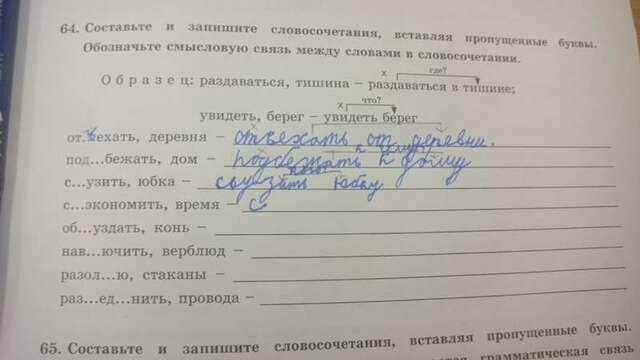 64. Составьте и запишите словосочетания, вставляя пропущенные буквы.
Обозначьте смысловую связь между словами в словосочетании.
х где?
Образец: раздаваться, тишина – раздаваться в тишине;
х что?
увидеть, берег – увидеть берег
от.ъехать, деревня – отъехать от деревни.
под...бежать, дом – подбежать к дому
с...узить, юбка – сузить юбку
с...экономить, время – с
об...уздать, конь –
нав...ючить, верблюд –
разол...ю, стаканы –
раз...ед...нить, провода –
65. Составьте и запишите словосочетания, вставляя пропущенные буквы.
грамматическая связь